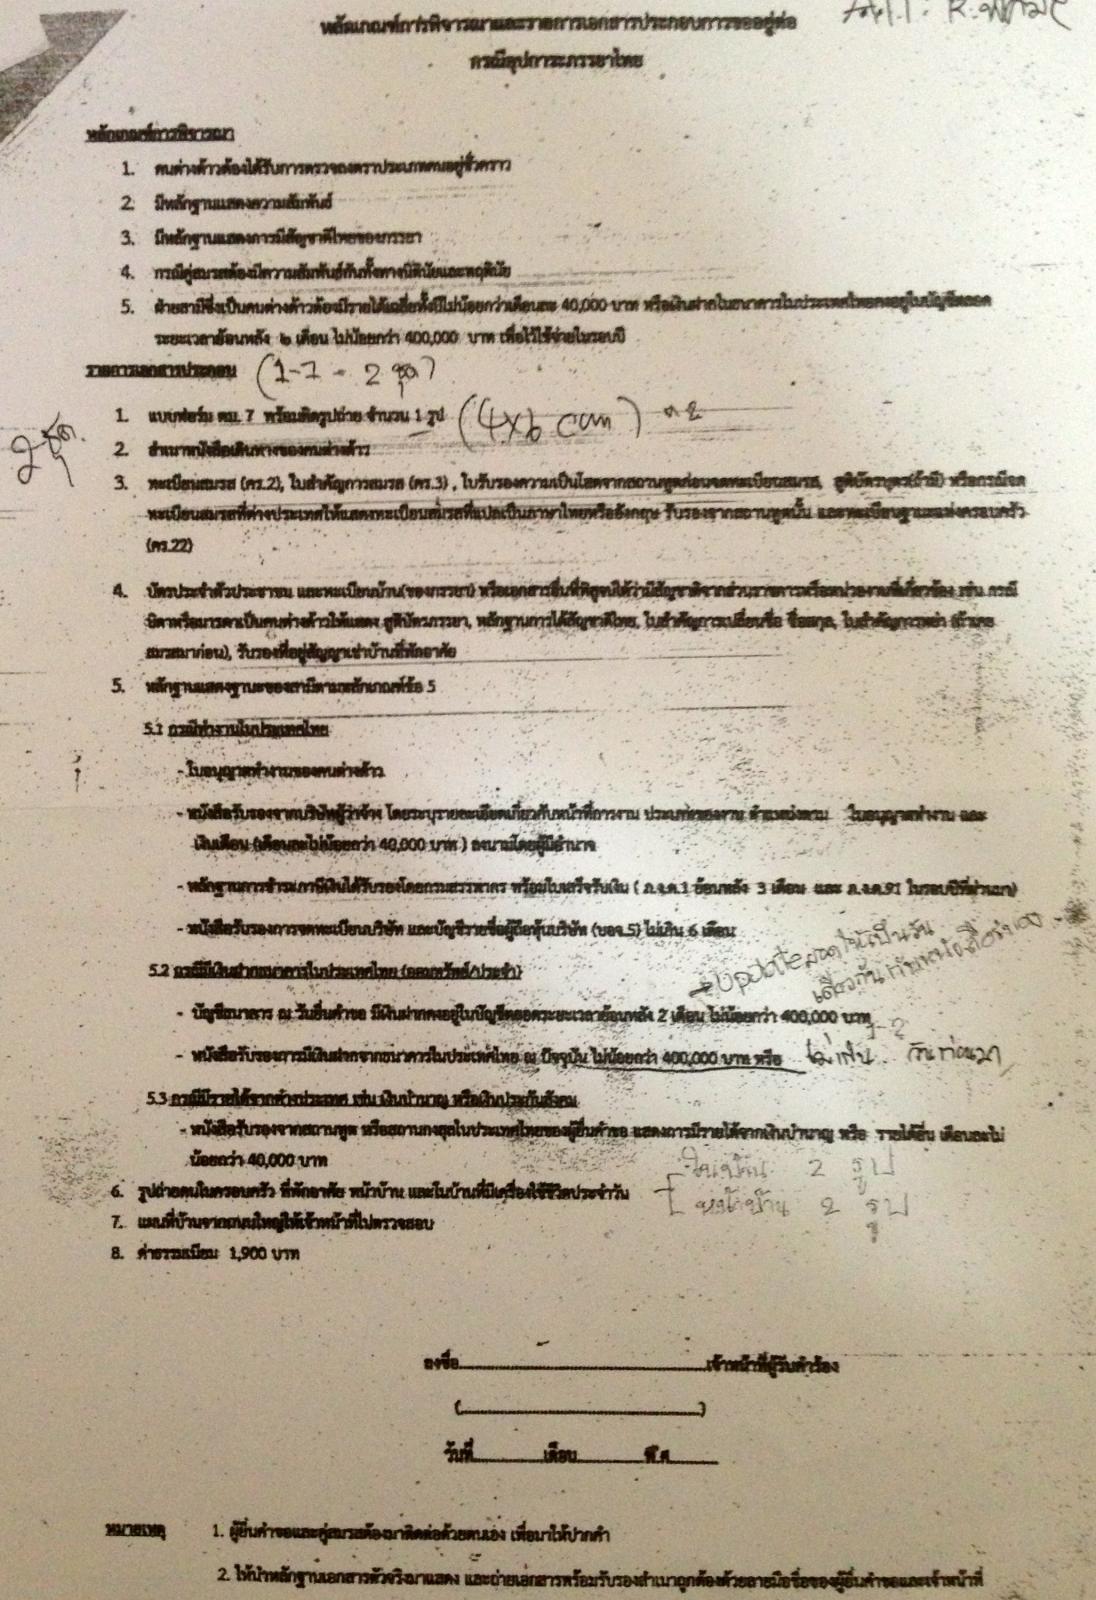 หลักเกณฑ์การพิจารณาและรายการเอกสารประกอบการขออยู่ต่อ
กรณีอุปการะภรรยาไทย
หลักเกณฑ์การพิจารณา
1. คนต่างด้าวต้องได้รับการตรวจลงตราประเภทคนอยู่ชั่วคราว
2. มีหลักฐานแสดงความสัมพันธ์
3. มีหลักฐานแสดงการมีสัญชาติไทยของภรรยา
4. กรณีคู่สมรสต้องมีความสัมพันธ์กันทั้งทางนิตินัยและพฤตินัย
5. ฝ่ายสามีซึ่งเป็นคนต่างด้าวต้องมีรายได้เฉลี่ยทั้งปีไม่น้อยกว่าเดือนละ 40,000 บาท หรือเงินฝากในธนาคารในประเทศไทยคงอยู่ในบัญชีตลอด
ระยะเวลาย้อนหลัง ๒ เดือน ไม่น้อยกว่า 400,000 บาท เพื่อไว้ใช้จ่ายในรอบปี
รายการเอกสารประกอบ (1-7 = 2 ชุด)
1. แบบฟอร์ม ตม. 7 พร้อมติดรูปถ่าย จำนวน 1 รูป (4x6 cm)
2 ชุด.
2. สำเนาหนังสือเดินทางของคนต่างด้าว
3. ทะเบียนสมรส (คร.2), ใบสำคัญการสมรส (คร.3) , ใบรับรองความเป็นโสดจากสถานทูตก่อนจดทะเบียนสมรส, สูติบัตรบุตร(ถ้ามี) หรือกรณีจด
ทะเบียนสมรสที่ต่างประเทศให้แสดงทะเบียนสมรสที่แปลเป็นภาษาไทยหรืออังกฤษ รับรองจากสถานทูตนั้น และทะเบียนฐานะแห่งครอบครัว
(คร.22)
4. บัตรประจำตัวประชาชน และทะเบียนบ้าน(ของภรรยา) หรือเอกสารอื่นที่พิสูจน์ได้ว่ามีสัญชาติจากส่วนราชการหรือหน่วยงานที่เกี่ยวข้อง เช่น กรณี
บิดาหรือมารดาเป็นคนต่างด้าวให้แสดง สูติบัตรภรรยา, หลักฐานการได้สัญชาติไทย, ใบสำคัญการเปลี่ยนชื่อ ชื่อสกุล, ใบสำคัญการหย่า (ถ้าเคย
สมรสมาก่อน), รับรองที่อยู่สัญญาเช่าบ้านที่พักอาศัย
5. หลักฐานแสดงฐานะของสามีตามหลักเกณฑ์ข้อ 5
5.1 กรณีทำงานในประเทศไทย
- ใบอนุญาตทำงานของคนต่างด้าว
- หนังสือรับรองจากบริษัทผู้ว่าจ้าง โดยระบุรายละเอียดเกี่ยวกับหน้าที่การงาน ประเภทของงาน ตำแหน่งตาม ใบอนุญาตทำงาน และ
เงินเดือน (เดือนละไม่น้อยกว่า 40,000 บาท ) ลงนามโดยผู้มีอำนาจ
- หลักฐานการชำระภาษีเงินได้รับรองโดยกรมสรรพากร พร้อมใบเสร็จรับเงิน ( ภ.ง.ด.1 ย้อนหลัง 3 เดือน และ ภ.ง.ด.91 ในรอบปีที่ผ่านมา)
- หนังสือรับรองการจดทะเบียนบริษัท และบัญชีรายชื่อผู้ถือหุ้นบริษัท (บอจ.5) ไม่เกิน 6 เดือน
→ update สมุดให้เป็นวัน
เดียวกันกับหนังสือรับรอง
5.2 กรณีมีเงินฝากธนาคารในประเทศไทย (ออมทรัพย์/ประจำ)
- บัญชีธนาคาร ณ วันยื่นคำขอ มีเงินฝากคงอยู่ในบัญชีตลอดระยะเวลาย้อนหลัง 2 เดือน ไม่น้อยกว่า 400,000 บาท
- หนังสือรับรองการมีเงินฝากจากธนาคารในประเทศไทย ณ ปัจจุบัน ไม่น้อยกว่า 400,000 บาท หรือ ไม่เกิน 1-2 วันก่อนมา
5.3 กรณีมีรายได้จากต่างประเทศ เช่น เงินบำนาญ หรือเงินประกันสังคม
- หนังสือรับรองจากสถานทูต หรือสถานกงสุลในประเทศไทยของผู้ยื่นคำขอ แสดงการมีรายได้จากเงินบำนาญ หรือ รายได้อื่น เดือนละไม่
น้อยกว่า 40,000 บาท
ในบ้าน 2 รูป
หน้าบ้าน 2 รูป
6. รูปถ่ายคนในครอบครัว ที่พักอาศัย หน้าบ้าน และในบ้านที่มีเครื่องใช้ชีวิตประจำวัน
7. แผนที่บ้านจากถนนใหญ่ให้เจ้าหน้าที่ไปตรวจสอบ
8. ค่าธรรมเนียม 1,900 บาท
ลงชื่อ..............................................เจ้าหน้าที่ผู้รับคำร้อง
(..............................................)
วันที่..............เดือน..............พ.ศ..........
หมายเหตุ 1. ผู้ยื่นคำขอและคู่สมรสต้องมาติดต่อด้วยตนเอง เพื่อมาให้ปากคำ
2. ให้นำหลักฐานเอกสารตัวจริงมาแสดง และถ่ายเอกสารพร้อมรับรองสำเนาถูกต้องด้วยลายมือชื่อของผู้ยื่นคำขอและเจ้าหน้าที่